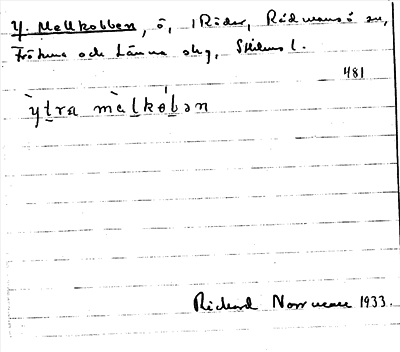 Y. Mellkobben, ö, i Räder, Rådmansö sn,
Fröhuna och Länna skg, Sthlms l.
481
ỳtra mèlkóbən
Rickard Norrman 1933.